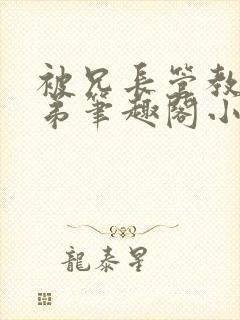 被兄長管教
弟筆趣閣小
龍泰星